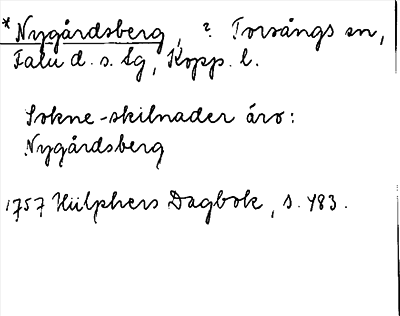 *Nygårdsberg, ? Torsångs sn,
Falu d. s. lg, Kopp. l.
Sokne-skilnader äro:
Nygårdsberg
1757 Hülphers Dagbok, s. 483.